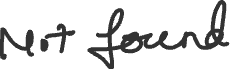 Not found